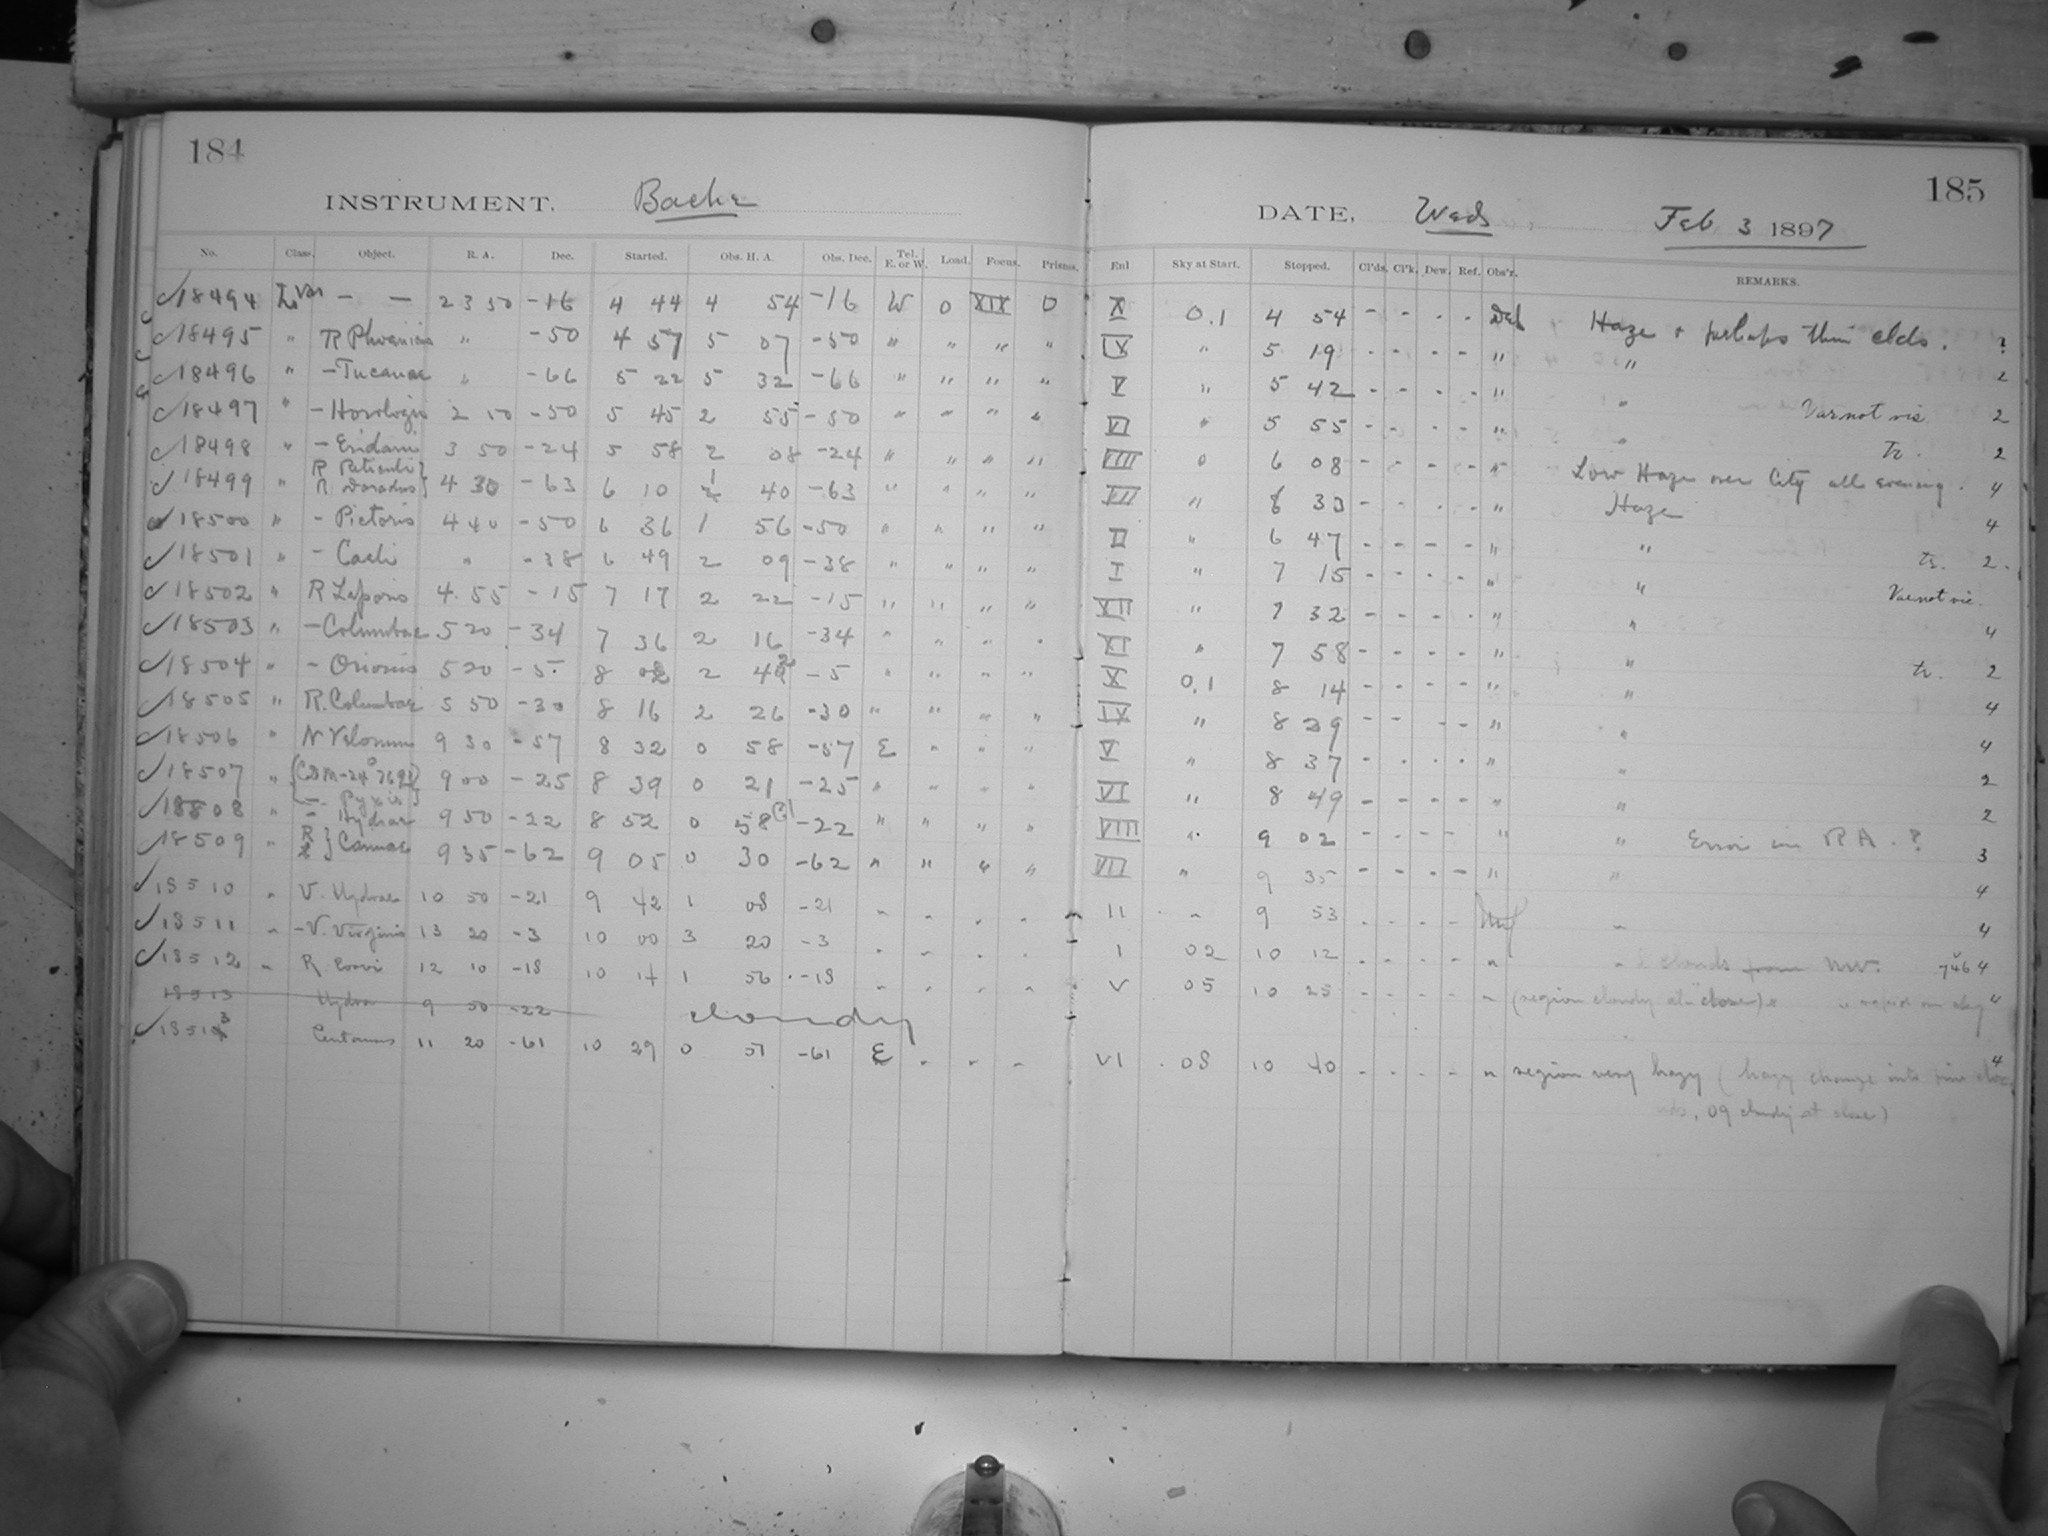 184
INSTRUMENT. Bache
No. Class. Object. R. A. Dec. Started. Obs. H. A. Obs. Dec. Tel. E. or W. Load. Focus. Prisms.
18494 L Var - - 23 50 -16 4 44 4 54 -16 W 0 XIX 0
18495 " R Phoenicis " -50 4 57 5 07 -50 " " " "
18496 " - Tucanae " -66 5 22 5 32 -66 " " " "
18497 " - Horologii 2 50 -50 5 45 2 55 -50 " " " "
18498 " - Eridani 3 50 -24 5 58 2 08 -24 " " " "
18499 " R Reticuli R Doradus } 4 30 -63 6 10 1 40 -63 " " " "
18500 " - Pictoris 4 40 -50 6 36 1 56 -50 " " " "
18501 " - Caeli " -38 6 49 2 09 -38 " " " "
18502 " R Leporis 4 55 -15 7 17 2 22 -15 " " " "
18503 " - Columbae 5 20 -34 7 36 2 16 -34 " " " "
18504 " - Orionis 5 20 -5 8 02 2 42 -5 " " " "
18505 " R. Columbae 5 50 -30 8 16 2 26 -30 " " " "
18506 " N Velorum 9 30 -57 8 32 0 58 -57 E " " "
18507 " { CDM -24° 7693 - Pyxis } 9 00 -25 8 39 0 21 -25 " " " "
18508 " - Hydrae 9 50 -22 8 52 0 58 -22 " " " "
18509 " R } Carinae 9 35 -62 9 05 0 30 -62 " " " "
18510 " V. Hydrae 10 50 -21 9 42 1 08 -21 " " " "
18511 " - V. Virginis 13 20 -3 10 00 3 20 -3 " " " "
18512 " R Corvi 12 10 -18 10 14 1 56 -18 " " " "
18513 Hydra 9 50 -22 cloudy
18513 Centaurus 11 20 -61 10 29 0 51 -61 E " " "
185
DATE, Weds Feb 3 1897
Enl Sky at Start. Stopped. Cl'ds. Cl'k. Dew. Ref. Obs'r. REMARKS.
X 0.1 4 54 - - - - Haze & perhaps thin clds. ?
IX " 5 19 - - - - " " 2
V " 5 42 - - - - " " Var not vis 2
VI " 5 55 - - - - " " tr. 2
VIII 0 6 08 - - - - " Low Haze over City all evening. 4
VII " 6 33 - - - - " Haze 4
II " 6 47 - - - - " " tr. 2.
I " 7 15 - - - - " " Var not vis.
XII " 7 32 - - - - " " 4
XI " 7 58 - - - - " " tr. 2
X 0.1 8 14 - - - - " " 4
IX " 8 29 - - - - " " 4
V " 8 37 - - - - " " 2
VI " 8 49 - - - - " " 2
VIII " 9 02 - - - - " " Error in RA.? 3
VII " 9 35 - - - - " " 4
II " 9 53 - - - - " 4
I 02 10 12 - - - - " " clouds from NW. 4
V 05 10 25 - - - - " (region cloudy at close) 4
VI 08 10 40 - - - - " region very hazy (hazy change into 4
09 cloudy at close)